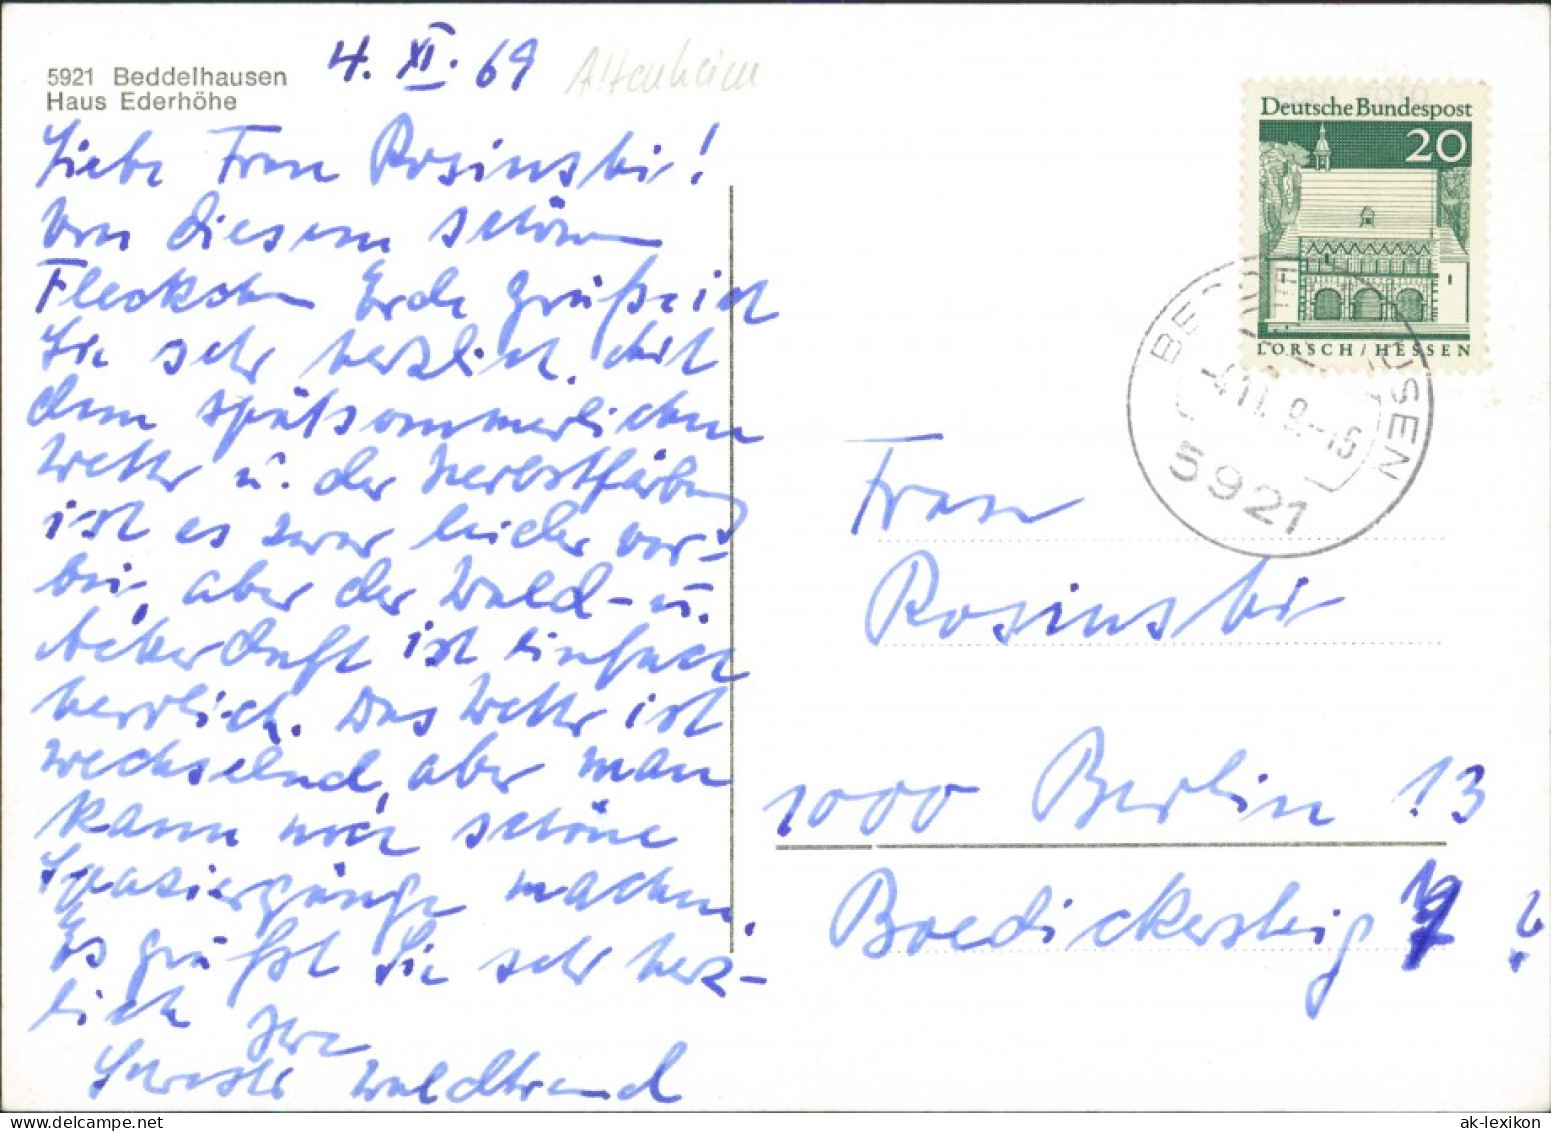 5921 Beddelhausen
Haus Ederhöhe
4. XI. 69
Altenheim
Liebe Frau Rosinski!
Von diesem schönen
Fleckchen Erde grüße ich
Sie sehr herzlich. Mit
dem spätsommerlichen
Wetter u. der Herbstfärbung
ist es zwar leider vor-
bei, aber der Wald- u.
Ackerduft ist einfach
herrlich. Das Wetter ist
wechselnd, aber man
kann noch schöne
Spaziergänge machen.
Es grüßt Sie sehr herz-
lich Ihre
Schwester Waldtraud
Deutsche Bundespost
20
LORSCH/HESSEN
5921
Frau
Rosinski
1000 Berlin 13
Boedickersteig
ak-lexikon